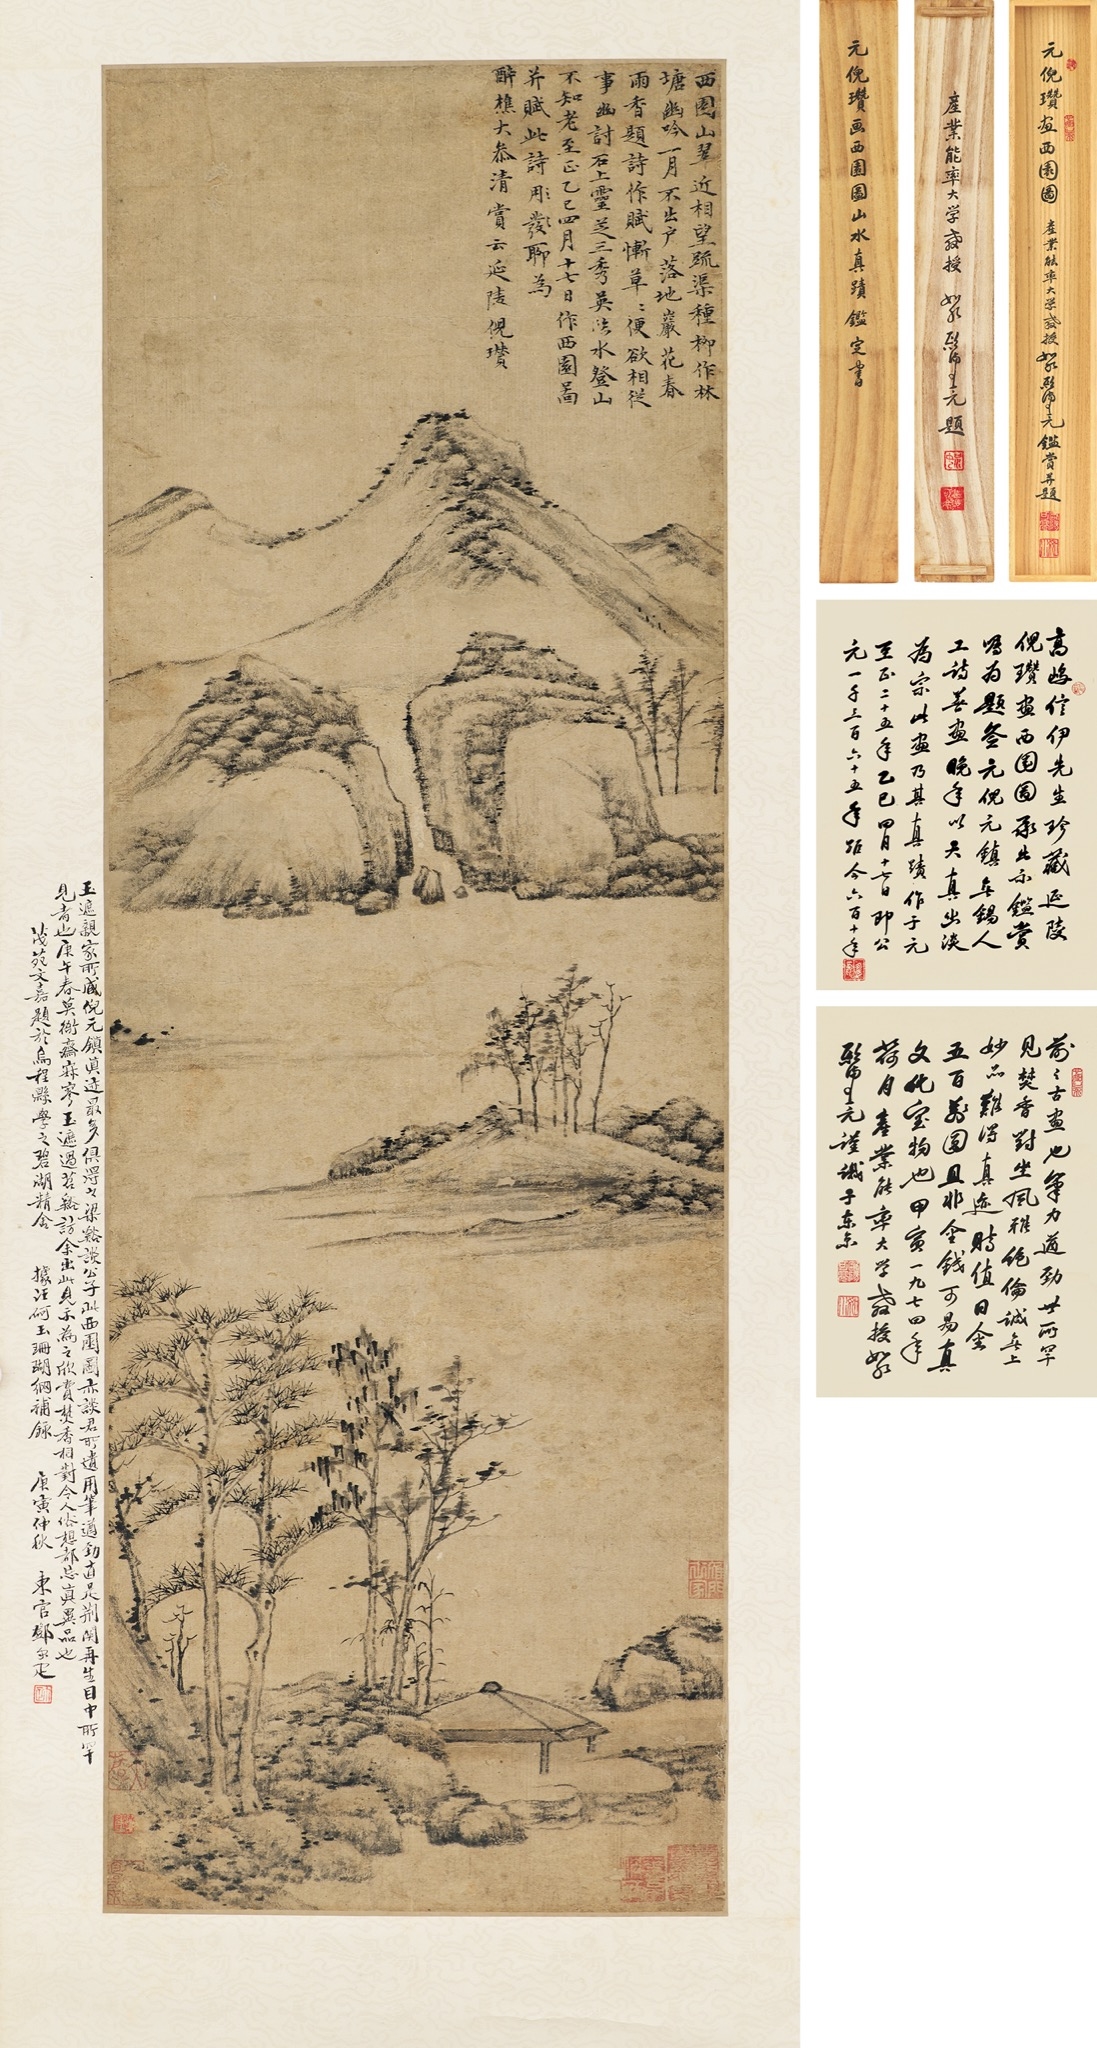 西園山翠近相望疏渠種柳作林
塘幽吟一月不出户落地巖花春
雨香題詩作賦慚草〻便欲相從
事幽討石上靈芝三秀英法水登山
不知老至正乙巳四月十七日作西園啚
并賦此詩彤發聊為
醉樵大叅清賞云延陵倪瓚
玉遮親家所咸倪元鎮真迹最多俱得之梁谿談公子此西園圖亦談君所遺用筆遒勁直是荆関再生目中所罕
見者也庚午春莫衙齋寂寥玉遮過苕谿訪余出此見示為之欣賞焚香相對令人俗想都忘真異品也
茂苑文嘉題於烏程縣學之碧湖精舍 據汪砢玉珊瑚網補錄 庚寅仲秋 東官鄧尔疋
元倪瓚画西園圖山水真蹟鑑定書
産業能率大学教授 題
元倪瓚画西園圖 産業能率大学教授 鑑賞并題
高嶋信伊先生珍藏延陵
倪瓚画西園圖承出示鑑賞
嘱为題簽元倪元鎮无錫人
工詩善画晚年以天真出淡
为宗此画乃其真蹟作于元
至正二十五年乙巳四月十七日即公
元一千三百六十五年距今六百十年
前之古画也筆力遒勁世所罕
見焚香對坐風雅絕倫誠无上
妙品難得真迹時值日金
五百萬圓且非金錢可易真
文化宝物也甲寅一九七四年
荷月産業能率大学教授
謹識于东京